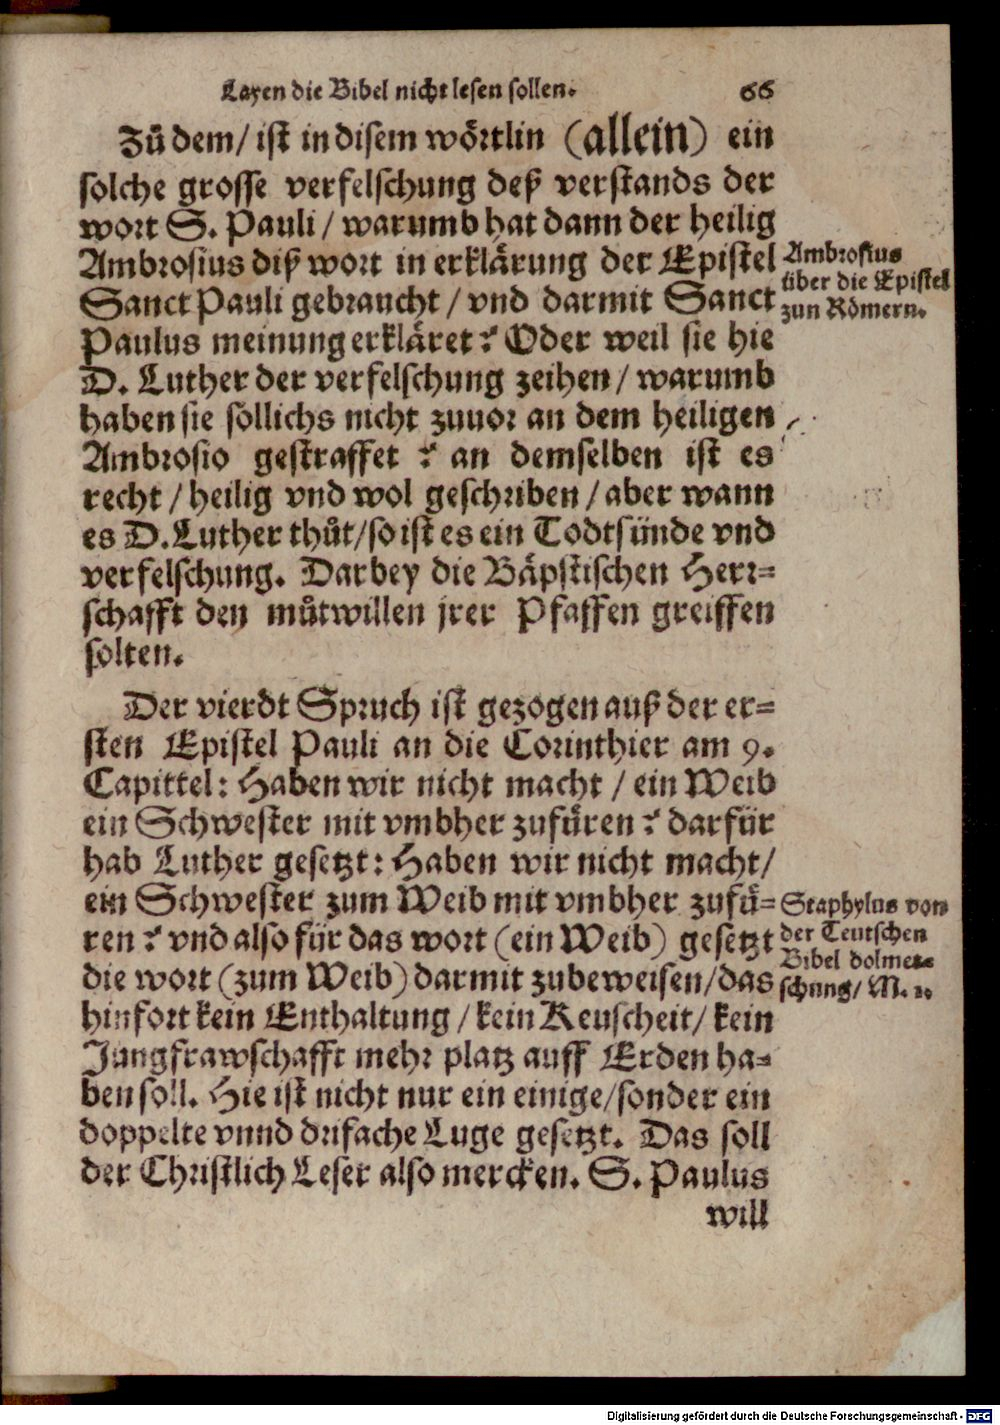 Layen die Bibel nicht lesen sollen. 66
Zů dem/ ist in disem wörtlin (allein) ein
solche grosse verfelschung deß verstands der
wort S. Pauli / warumb hat dann der heilig
Ambrosius diß wort in erklärung der Epistel
Sanct Pauli gebraucht / vnd darmit Sanct
Paulus meinung erkläret? Oder weil sie hie
D. Luther der verfelschung zeihen / warumb
haben sie sollichs nicht zuuor an dem heiligen
Ambrosio gestraffet? an demselben ist es
recht / heilig vnd wol geschriben / aber wann
es D. Luther thůt/ so ist es ein Todtsünde vnd
verfelschung. Darbey die Bäpstischen Herr=
schafft den můtwillen jrer Pfaffen greiffen
solten.
Ambrosius
über die Epistel
zun Römern.
Der vierdt Spruch ist gezogen auß der er=
sten Epistel Pauli an die Corinthier am 9.
Capittel: Haben wir nicht macht / ein Weib
ein Schwester mit vmbher zufüren? darfür
hab Luther gesetzt: Haben wir nicht macht/
ein Schwester zum Weib mit vmbher zufü=
ren? vnd also für das wort (ein Weib) gesetzt
die wort (zum Weib) darmit zubeweisen/ das
hinfort kein Enthaltung / kein Keuscheit/ kein
Jungfrawschafft mehr platz auff Erden ha=
ben soll. Hie ist nicht nur ein einige/ sonder ein
doppelte vnnd drifache Luge gesetzt. Das soll
der Christlich Leser also mercken. S. Paulus
will
Staphylus von
der Teutschen
Bibel dolmet=
schung/ M.
Digitalisierung gefördert durch die Deutsche Forschungsgemeinschaft - DFG